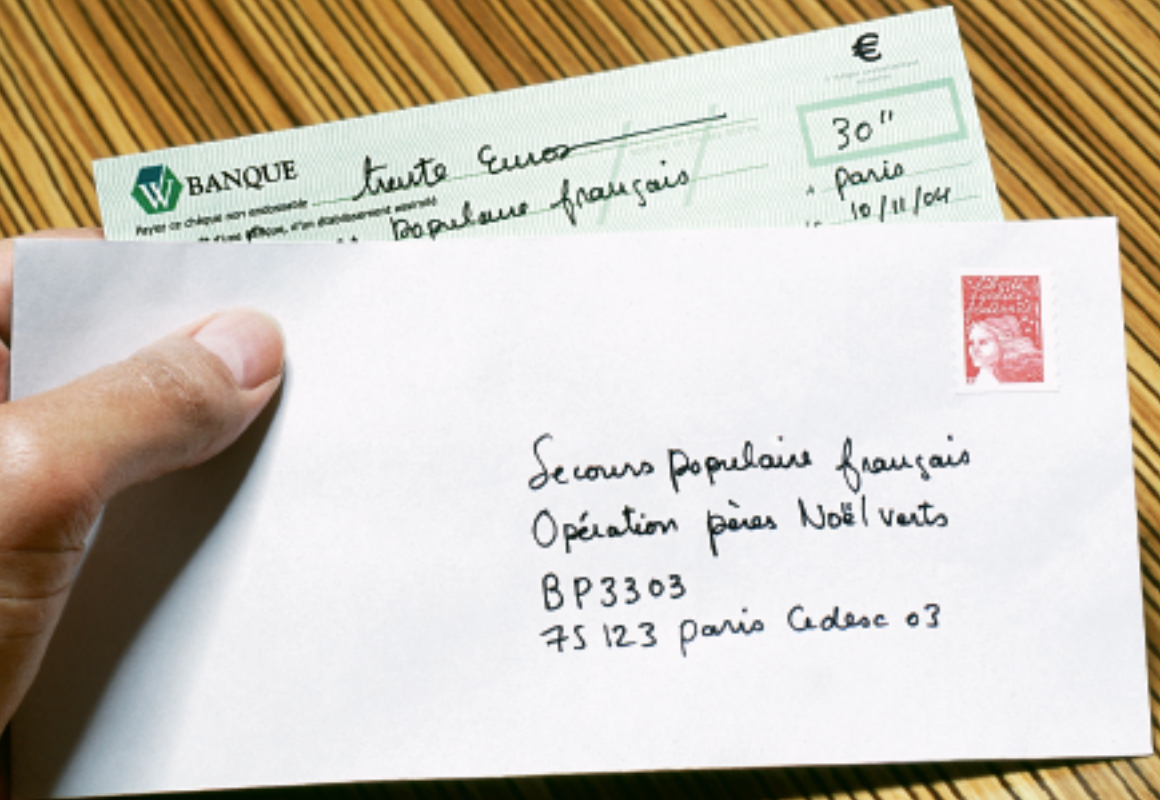 €
BANQUE
trente Euros
30"
Payez ce chèque non endossable
populaire français
Paris
10/11/04
Secours populaire français
Opération pères Noël verts
BP3303
75123 Paris Cedex 03